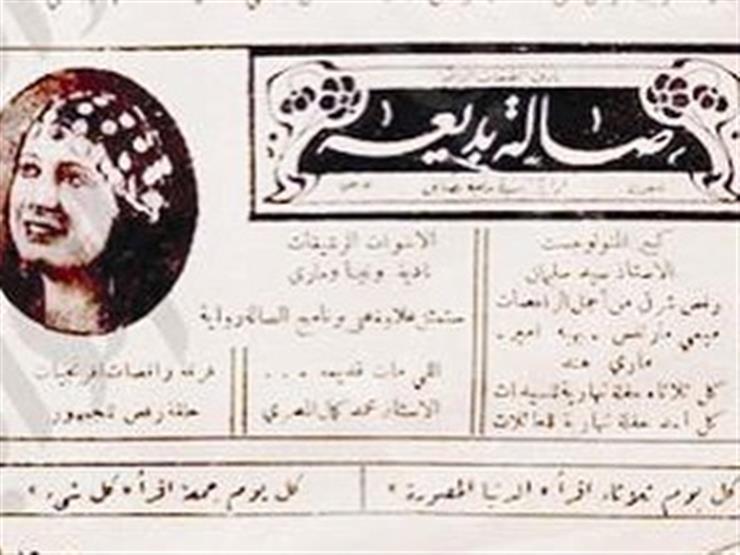 صالة بديعه
كبير المنولوجست
الاستاذ سيد سليمان
رقص شرقي من أجمل الراقصات
ميمي مارتنس . بهيه امير .
ماري هند
كل ثلاثاء حفلة نهارية للسيدات
كل أحد حفلة نهارية للعائلات
الاخوات الرشيقات
نادية ونينا وماري
ستمثل علاوة على برنامج الصالة رواية
اللي مات قديمه . . .
الاستاذ محمد كمال المصري
فرقة راقصات افرنجيات
حلقة رقص للجمهور
كل يوم ثلاثاء اقرأ « الدنيا المصورة »
كل يوم جمعة اقرأ « كل شيء »